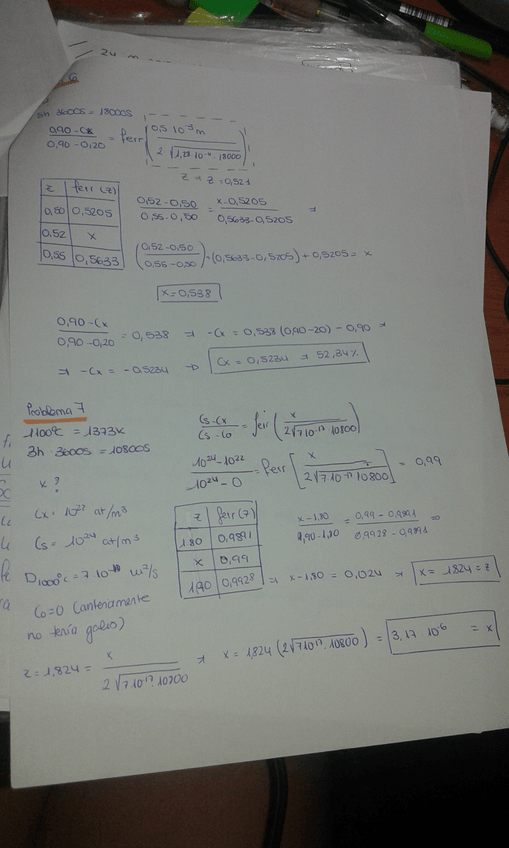 24 m
5h 3600s = 18000s
0,90 - Cx / 0,90 - 0,20 = ferr ( 0,5 10⁻³ m / 2 √1,28 · 10⁻¹¹ · 18000 )
z → z = 0,521
z | ferr (z)
0,50 | 0,5205
0,52 | x
0,55 | 0,5633
0,52 - 0,50 / 0,55 - 0,50 = x - 0,5205 / 0,5633 - 0,5205 ⇒
( 0,52 - 0,50 / 0,55 - 0,50 ) · (0,5633 - 0,5205) + 0,5205 = x
x = 0,538
0,90 - Cx / 0,90 - 0,20 = 0,538 ⇒ -Cx = 0,538 (0,90 - 20) - 0,90 ⇒
⇒ -Cx = - 0.5234 ⇒ Cx = 0,5234 ⇒ 52,34%
Problema 7
1100ºC = 1373K
3h 3600s = 10800s
x?
Cx = 10²² at/m³
Cs = 10²⁴ at/m³
D1000ºC = 7 10⁻¹⁷ m²/s
C0 = 0 (anteriormente
no tenía galio)
Cs - Cx / Cs - C0 = ferr ( x / 2 √7 10⁻¹⁷ 10800 )
10²⁴ - 10²² / 10²⁴ - 0 = ferr [ x / 2 √7 10⁻¹⁷ 10800 ] = 0,99
z | ferr (z)
1.80 | 0,9891
x | 0,99
1,90 | 0,9928
x - 1,80 / 1,90 - 1,80 = 0,99 - 0,9891 / 0,9928 - 0,9891 ⇒
⇒ x - 1,80 = 0,024 ⇒ x = 1.824 = z
z = 1,824 = x / 2 √7 10⁻¹⁷ · 10800 ⇒ x = 1,824 (2 √7 10⁻¹⁷ · 10800) = 3,17 · 10⁻⁶ = x